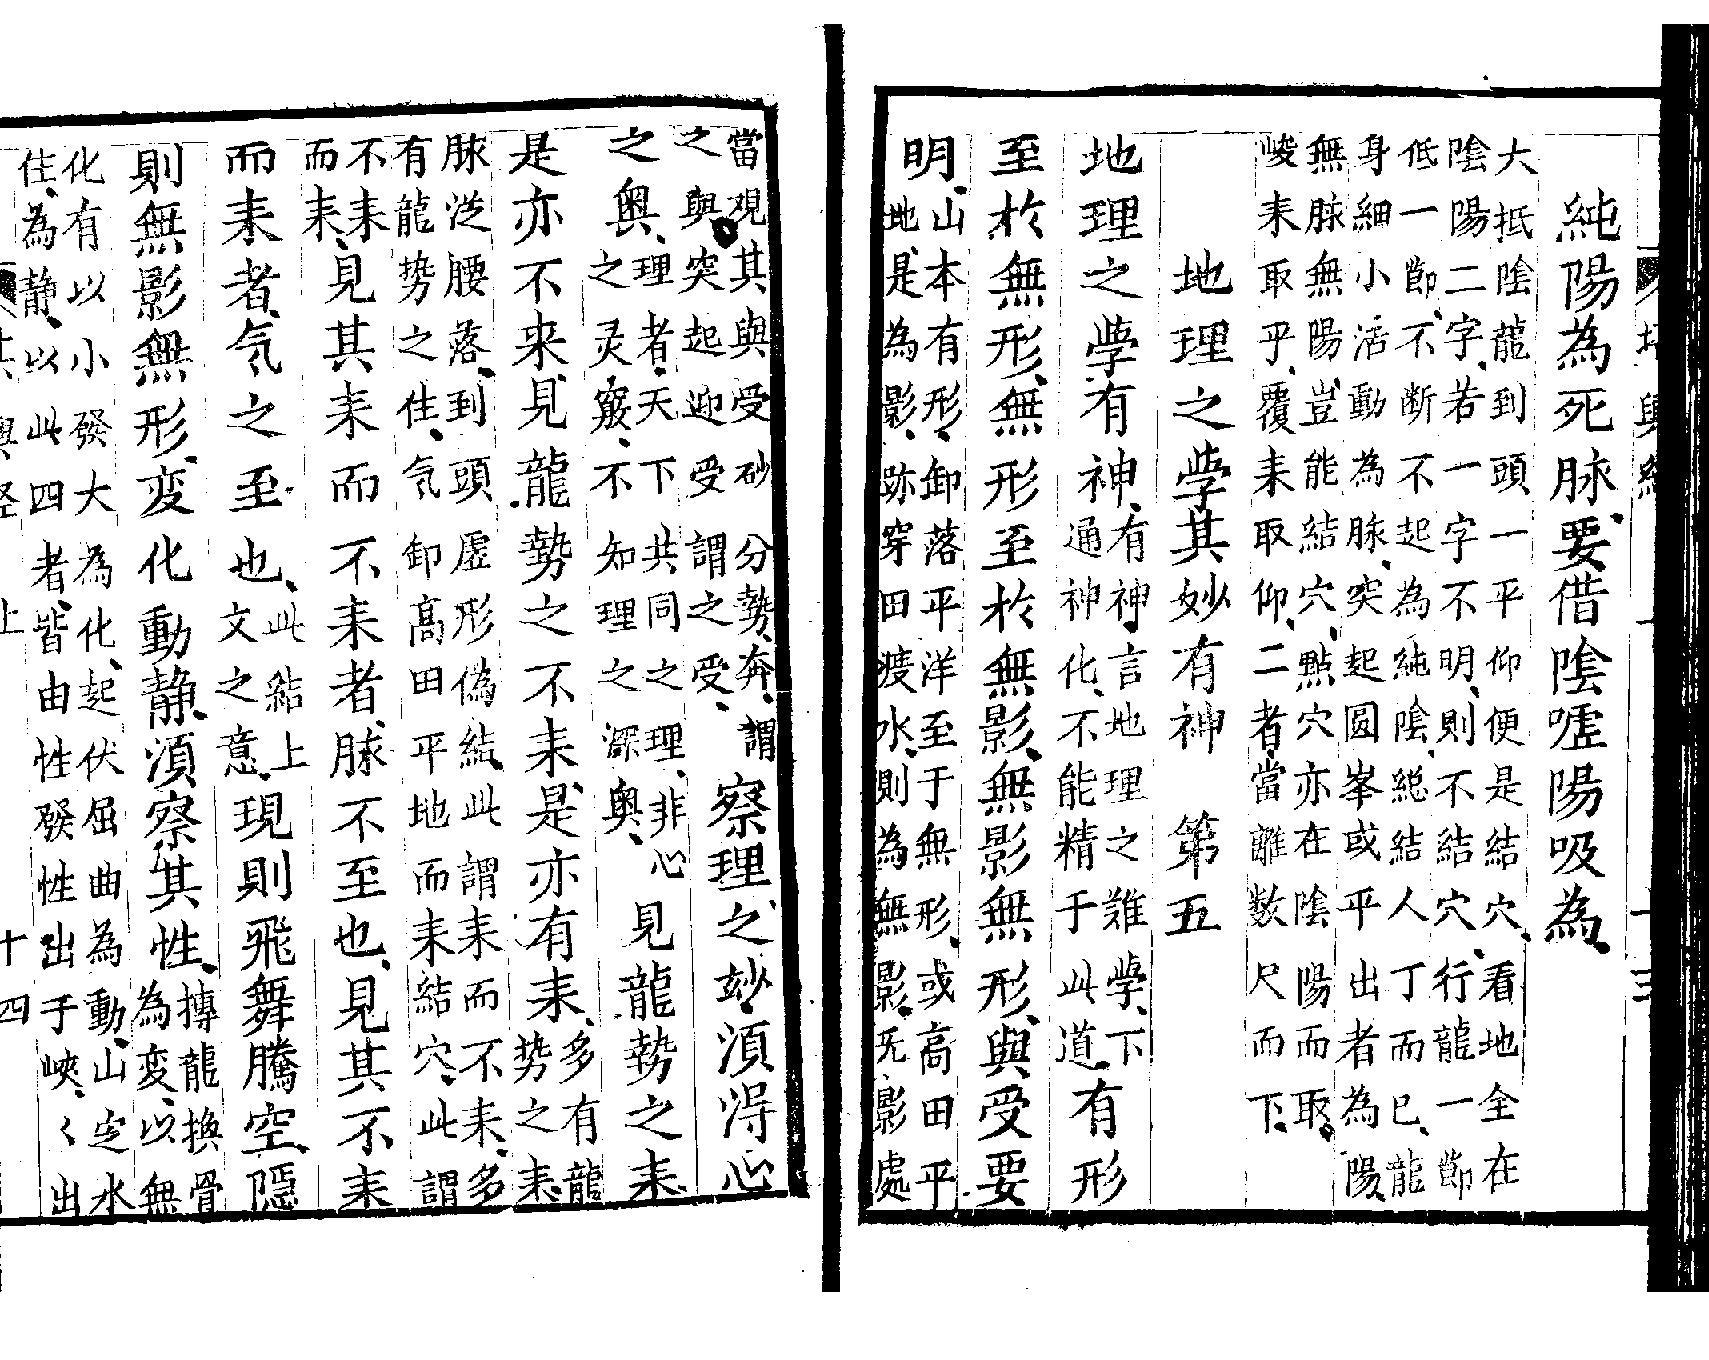 純陽為死脉、要借隂嘘陽吸為、
大抵隂龍到頭一平仰便是結穴、看地全在
隂陽二字、若一字不明、則不結穴、行龍一節
低一節、不断不起為純隂、総結人丁而已、龍
身細小活動為脉、突起圓峯或平出者為陽
無脉無陽豈能結穴、點穴亦在隂陽而取、
峻耒取乎、覆耒取仰、二者、當離数尺而下、
地理之學其妙有神　第五
地理之學、有神、有神、言地理之難學、下
通神神化、不能精于此道、有形
至於無形、無形至於無影、無影無形、與受要
明、山本有形、卸落平洋至于無形、或高田平
地是為影、跡穿田渡水、則為無影、旡影處
當覌其與受砂分勢、奔、謂
之與突起迎受謂之受、察理之妙、湏得心
之奥、理者、天下共同之理、非心
之灵竅、不知理之深奥、見龍勢之耒、
是亦不来、見龍勢之不耒、是亦有耒、多有龍
势之耒、
不耒
而耒、見其耒而不耒者、脉不至也、見其不耒
脉泛腰落、到頭虚形偽結、此謂耒而不耒、多
有龍势之住、气卸高田平地而耒結穴、此謂
而耒者、气之至也、此結上
文之意、現則飛舞騰空、隱
則無影無形、変化動静、湏察其性、摶龍換骨
為変、以無
化有以小發大為化、起伏屈曲為動、山定水
住、為静、以此四者、皆由性發性出于峽、〻出
十四